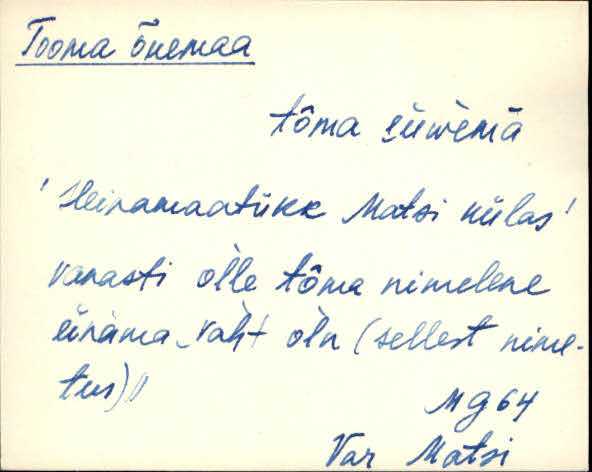 Tooma õuemaa
tôma
'Heinamaatükk Matsi külas'
vanasti olle tôma nimelene
einama-vaht oln (sellest nime-
tus) //
Mg 64
Var Matsi